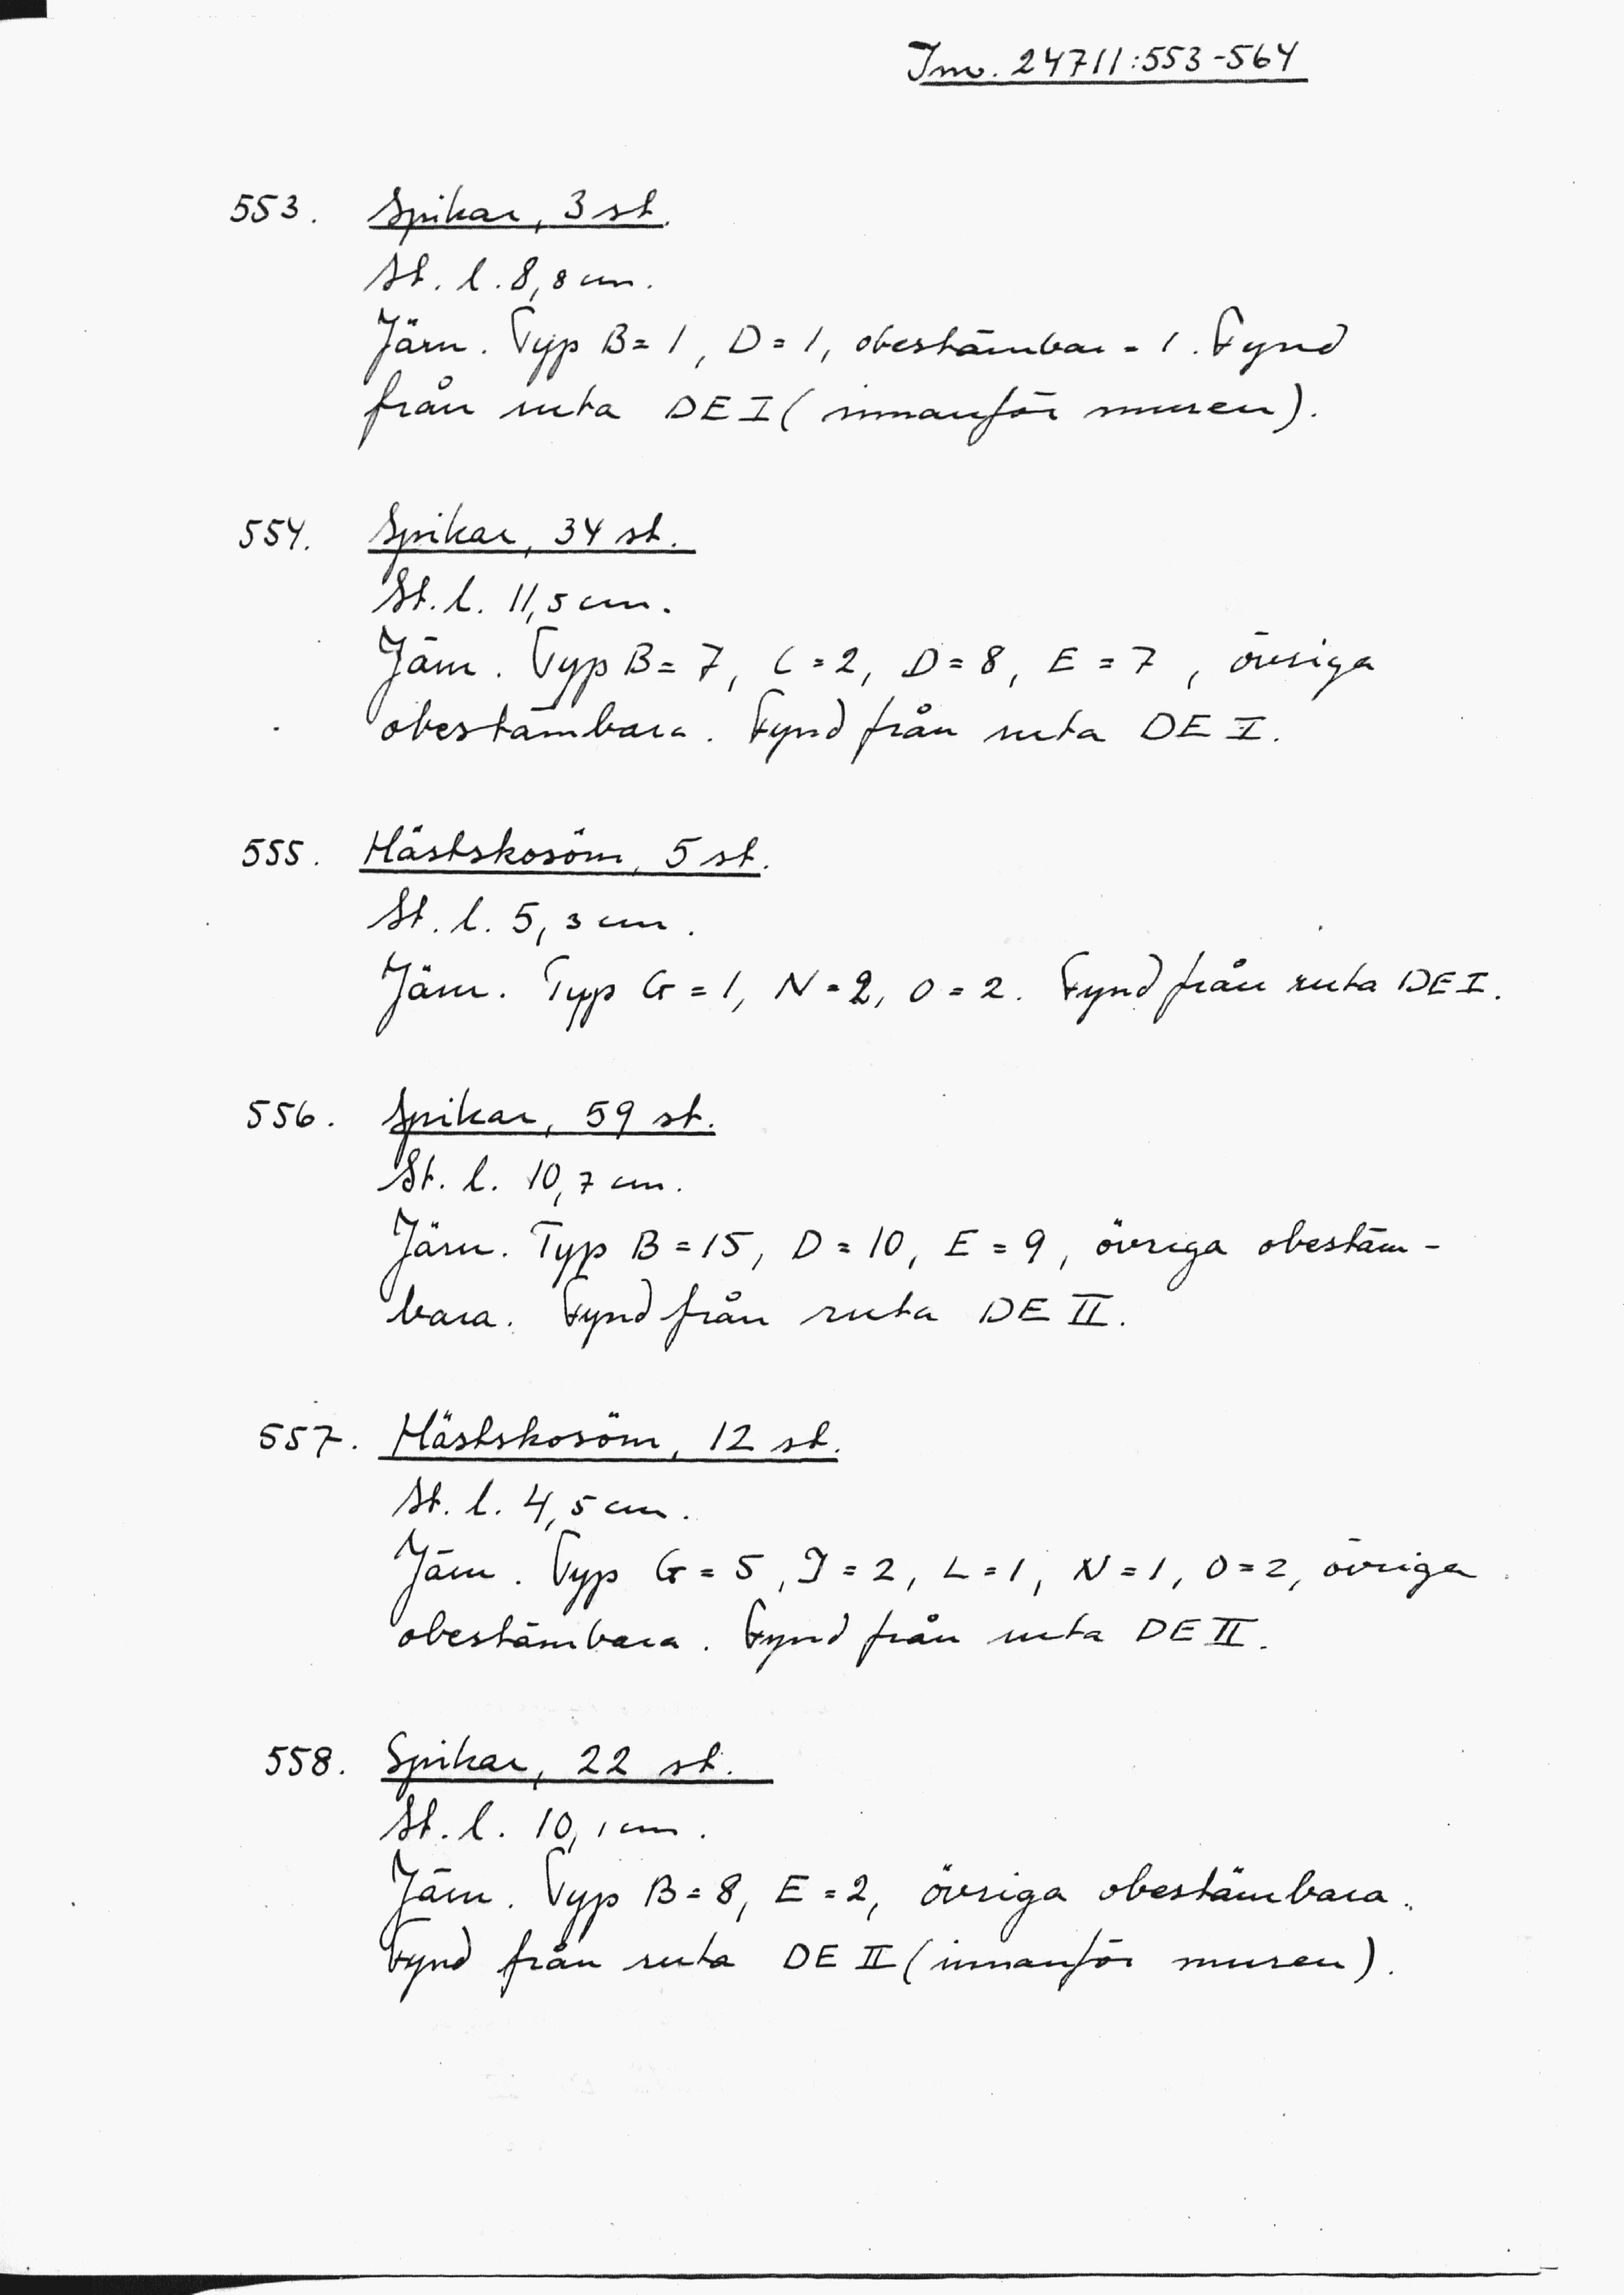 Inv. 24711:553-564
553. Spikar, 3 st.
St. l. 8,8 cm.
Järn. Typ B=1, D=1, obestämbar=1. Fynd
från ruta DE I (innanför muren).
554. Spikar, 34 st.
St. l. 11,5 cm.
Järn. Typ B=7, C=2, D=8, E=7, övriga
obestämbara. Fynd från ruta DE I.
555. Hästskosöm, 5 st.
St. l. 5,3 cm.
Järn. Typ G=1, N=2, O=2. Fynd från ruta DE I.
556. Spikar, 59 st.
St. l. 10,7 cm.
Järn. Typ B=15, D=10, E=9, övriga obestäm-
bara. Fynd från ruta DE II.
557. Hästskosöm, 12 st.
St. l. 4,5 cm.
Järn. Typ G=5, J=2, L=1, N=1, O=2, övriga
obestämbara. Fynd från ruta DE II.
558. Spikar, 22 st.
St. l. 10,1 cm.
Järn. Typ B=8, E=2, övriga obestämbara.
Fynd från ruta DE II (innanför muren).